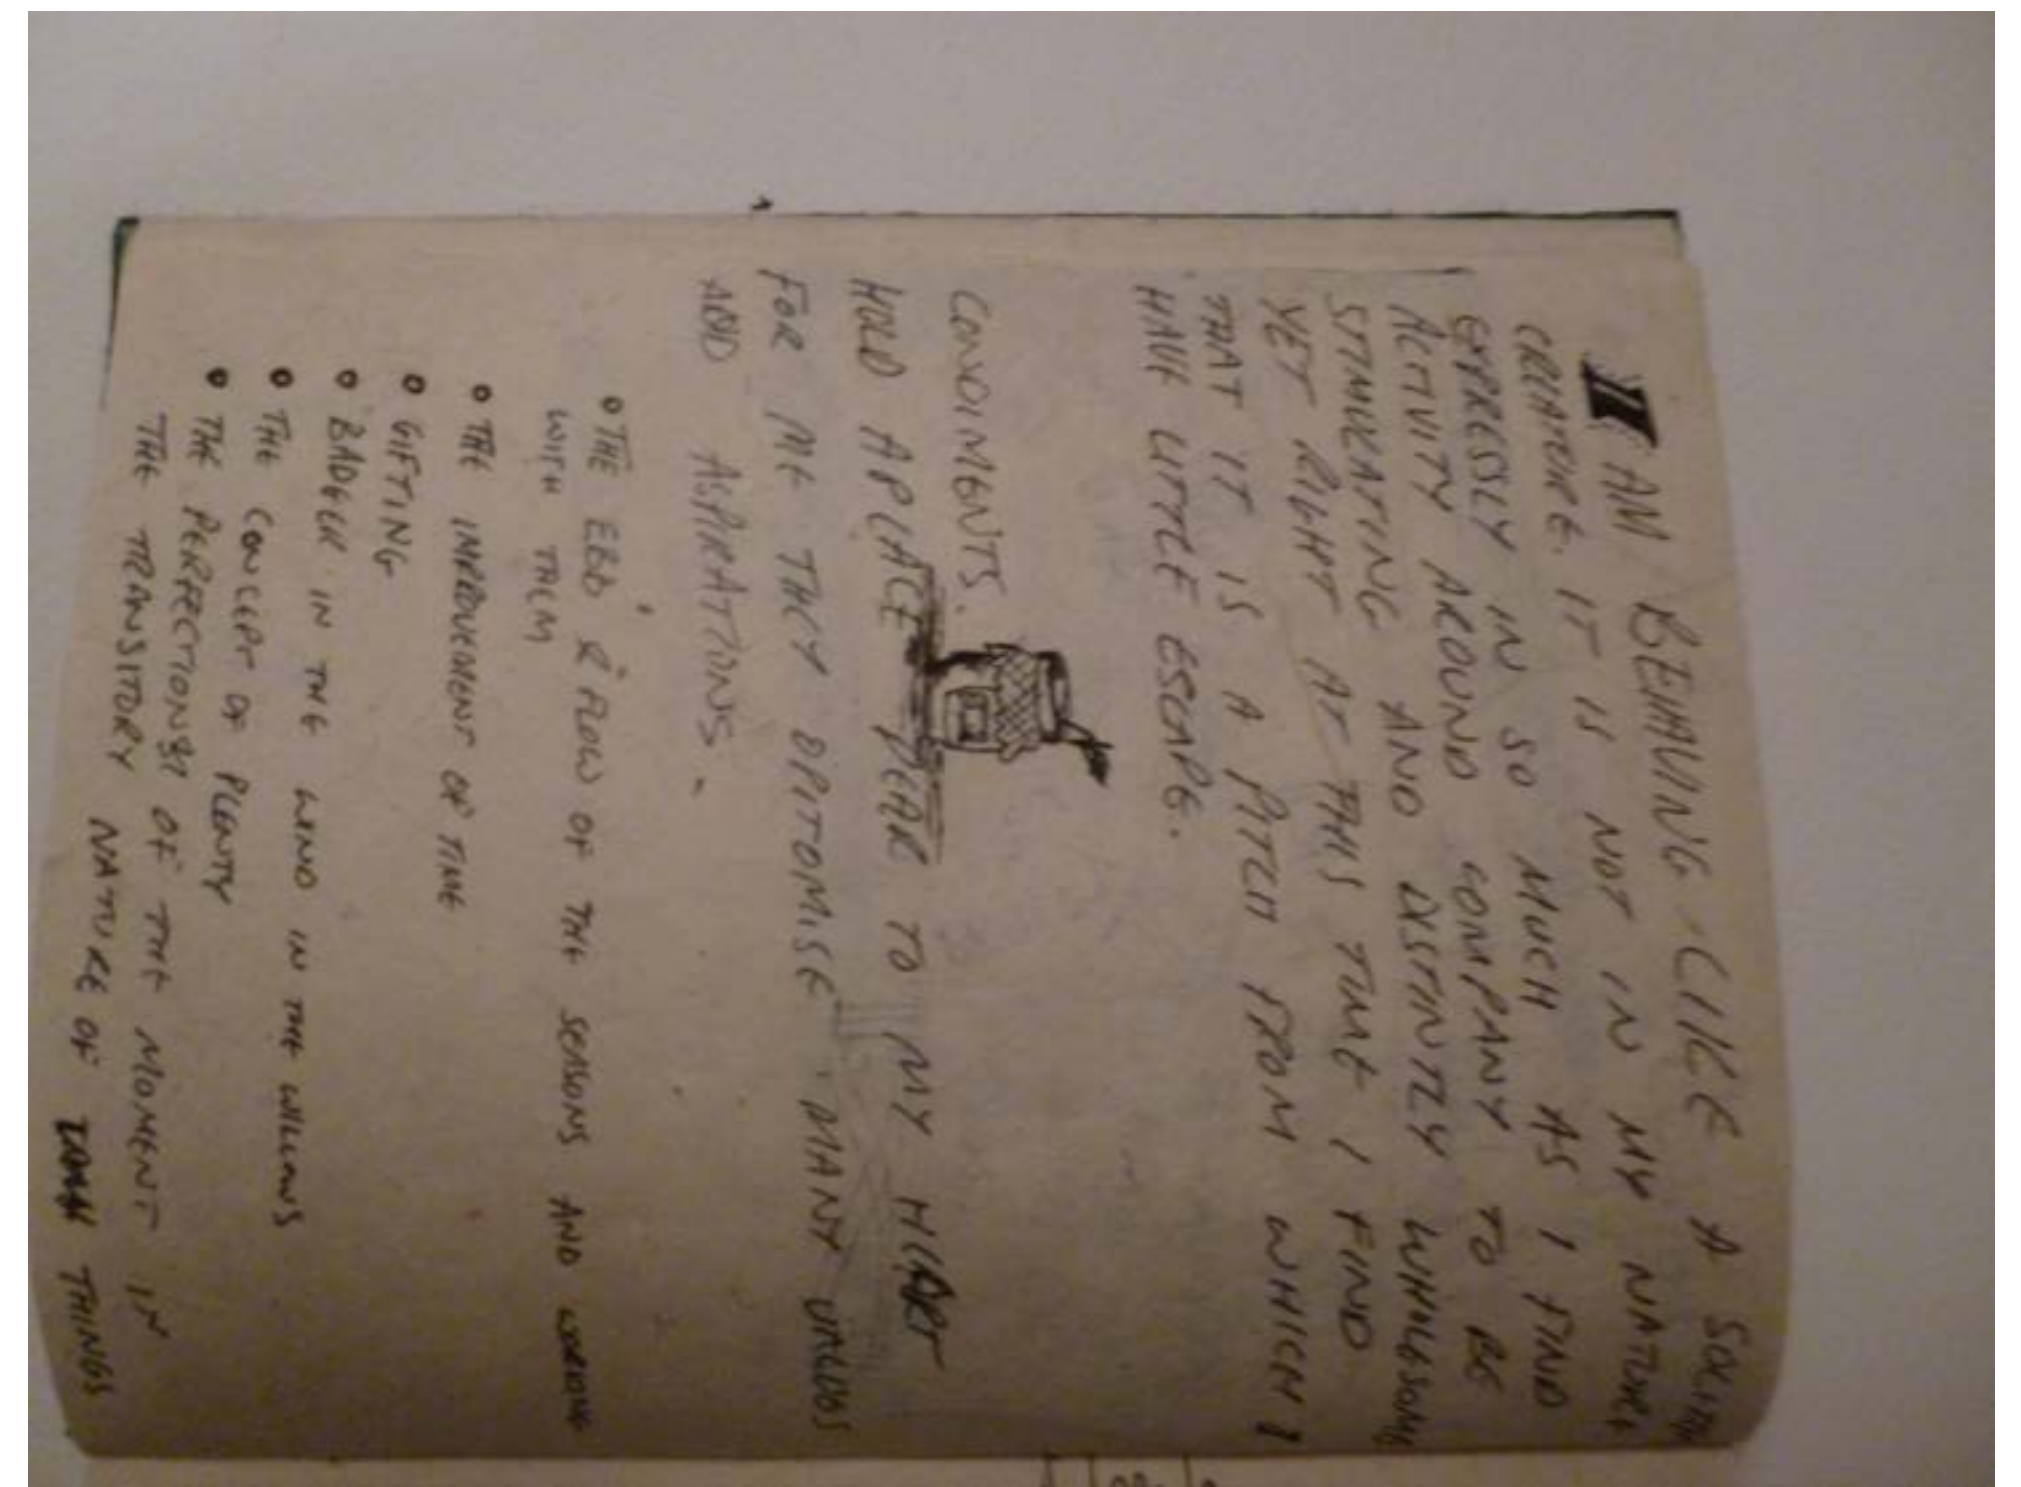 I AM BEHAVING LIKE A SOLITARY
CREATURE. IT IS NOT IN MY NATURE
EXPRESSLY IN SO MUCH AS I FIND
ACTIVITY AROUND COMPANY TO BE
STIMULATING AND DISTINTLY WHOLESOME
YET RIGHT AT THIS TIME I FIND
THAT IT IS A PITCH FROM WHICH I
HAVE LITTLE ESCAPE.
CONDIMENTS.
HOLD A PLACE DEAR TO MY HEART
FOR ME THEY EPITOMISE MANY VALUES
AND ASPIRATIONS.
• THE EBB & FLOW OF THE SEASONS AND WORKING
WITH THEM
• THE IMPROVEMENT OF TIME
• GIFTING
• BADGER IN THE WIND IN THE WILLOWS
• THE CONCEPT OF PLENTY
• THE PERFECTIONS OF THE MOMENT IN
THE TRANSITORY NATURE OF THINGS